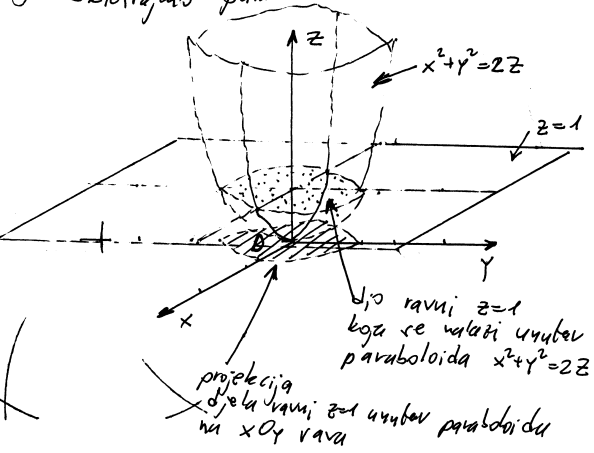 Z
x²+y²=2Z
z=1
0
Y
X
dio ravni z=1
koja se nalazi unutar
paraboloida x²+y²=2Z
projekcija
djela ravni z=1 unutar paraboloida
na xOy ravan